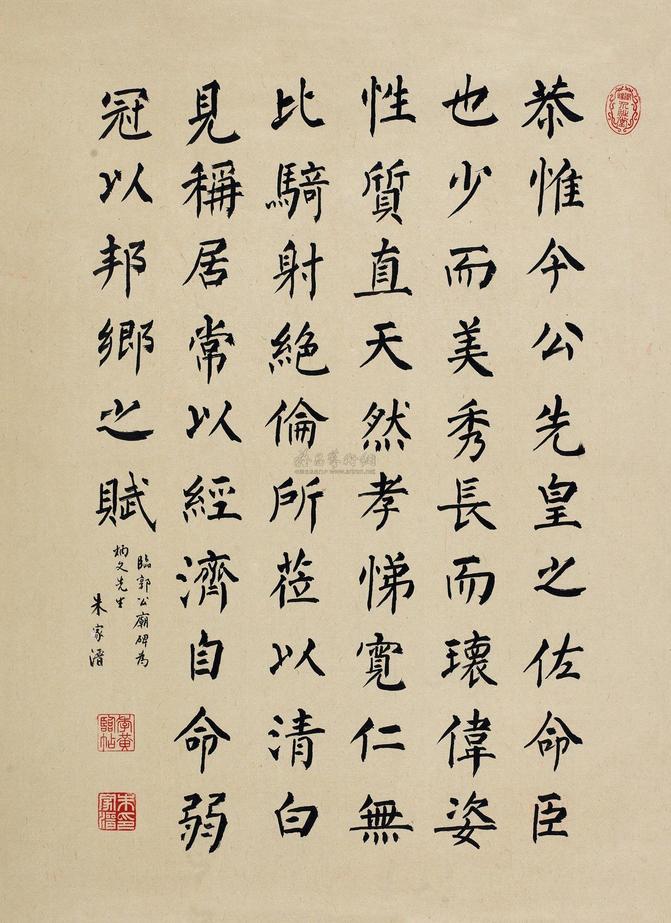 恭惟今公先皇之佐命臣
也少而美秀長而瓌偉姿
性質直天然孝悌寬仁無
比騎射絕倫所莅以清白
見稱居常以經濟自命弱
冠以邦鄉之賦
臨郭公廟碑為
炳文先生
朱家濟